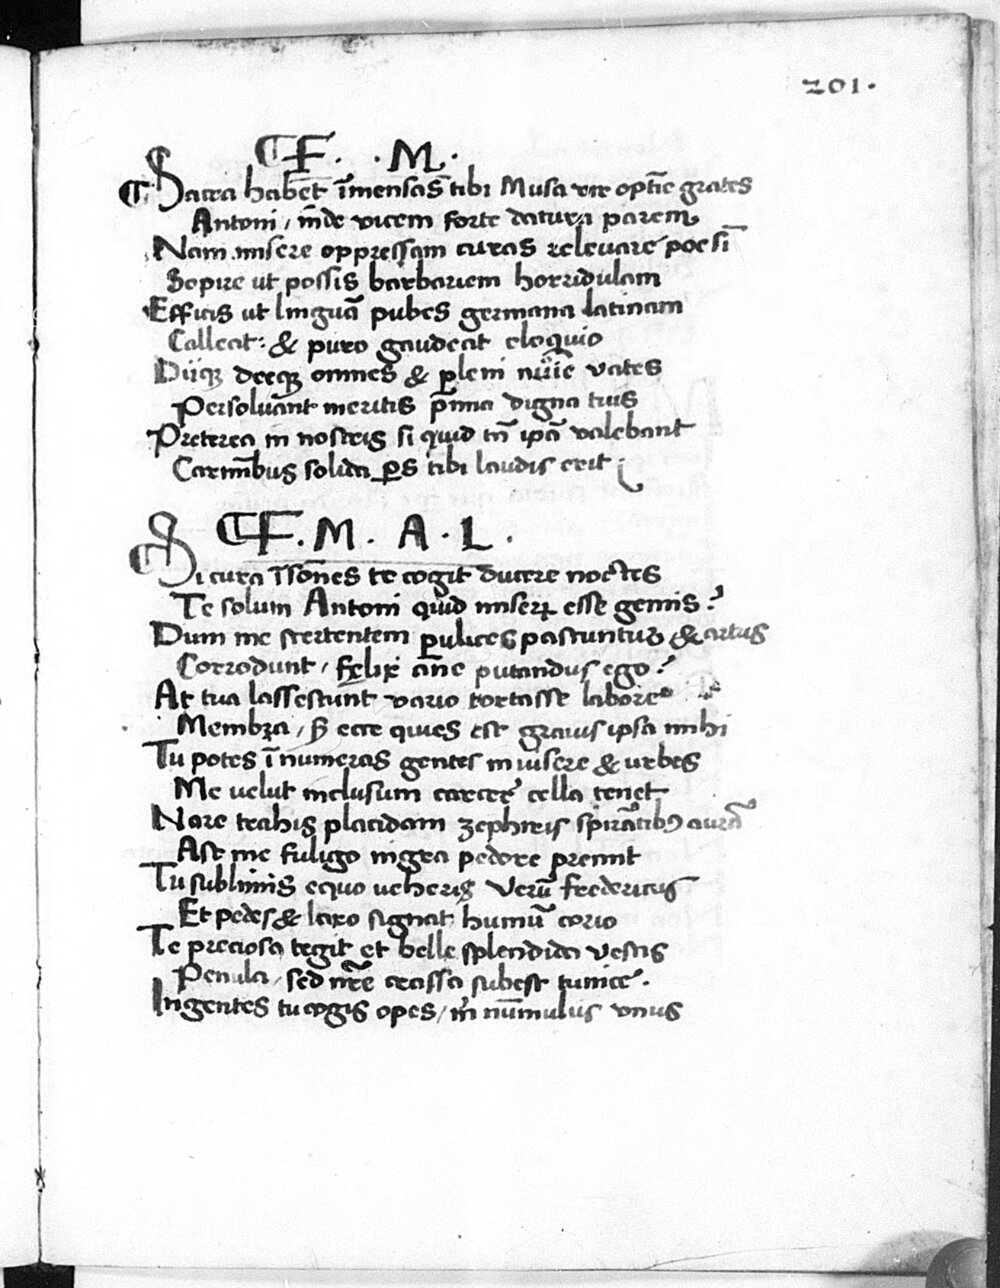 201.
F. .M.
Sacra habet īmensas tibi Musa vir optīe grates
Antoni, īnde vicem forte datura parem
Nam misere oppressam curas relevare poesī
Sopire ut possis barbariem horridulam
Efficis ut linguā pubes germana latinam
Calleat: & puro gaudeat eloquio
Diiqꝫ deeqꝫ omnes & pleni nūīe vates
Persolvant meritis p̄mia digna tuis
Preterea in nostris si quid tn̄ ipā valebant
Carminībus solida ꝑs tibi laudis erit
F. M. A. L.
Si cura īsōnes te cogit ducere noctes
Te solum Antoni quid miseꝝ esse gemis?
Dum me stertentem pulices pascuntur & artus
Corrodunt, felix āne putandus ego?
At tua lassescunt vario fortasse labore
Membra, ecce quies est gravis ipsa mihi
Tu potes īnumeras gentes invisere & urbes
Me velut inclusum carcere cella tenet
Nare trahis placidam zephireis spirātibꝰ aurā
Ast me fuligo nigra pedore premit
Tu sublimis equo veheris Verū fredericus
Et pedes & laxo signat humū corio
Te preciosa tegit et belle splendida vestis
Penula, sed nr̄e crassa subest tunice.
Ingentes tu cogis opes, nūmulus unus